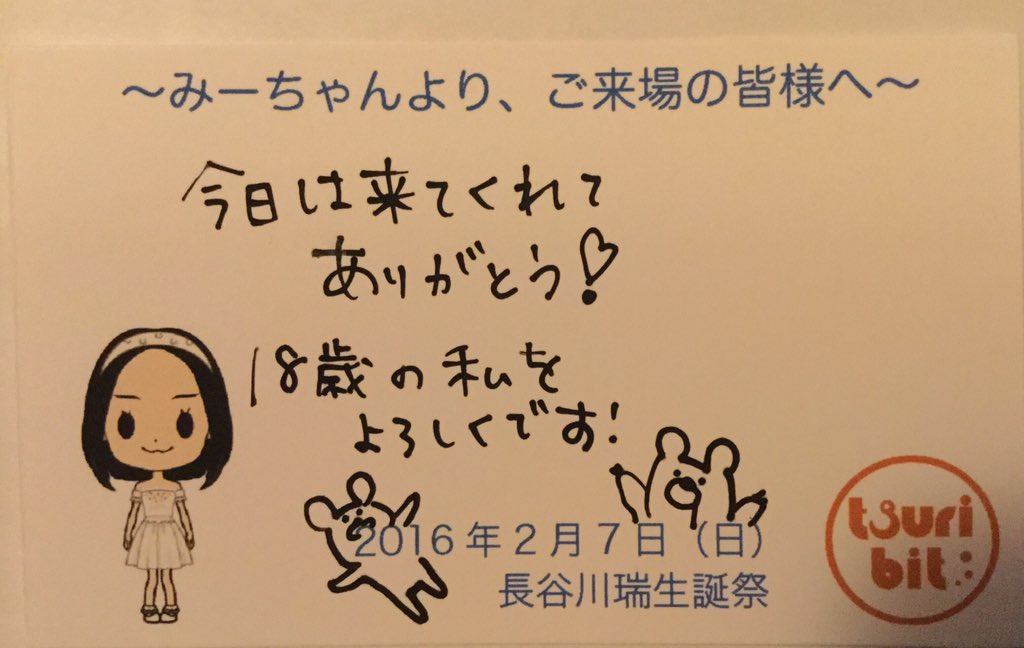 ～みーちゃんより、ご来場の皆様へ～
今日は来てくれて
ありがとう!
18歳の私を
よろしくです!
2016年2月7日（日）
長谷川瑞生誕祭
tsuri
bit